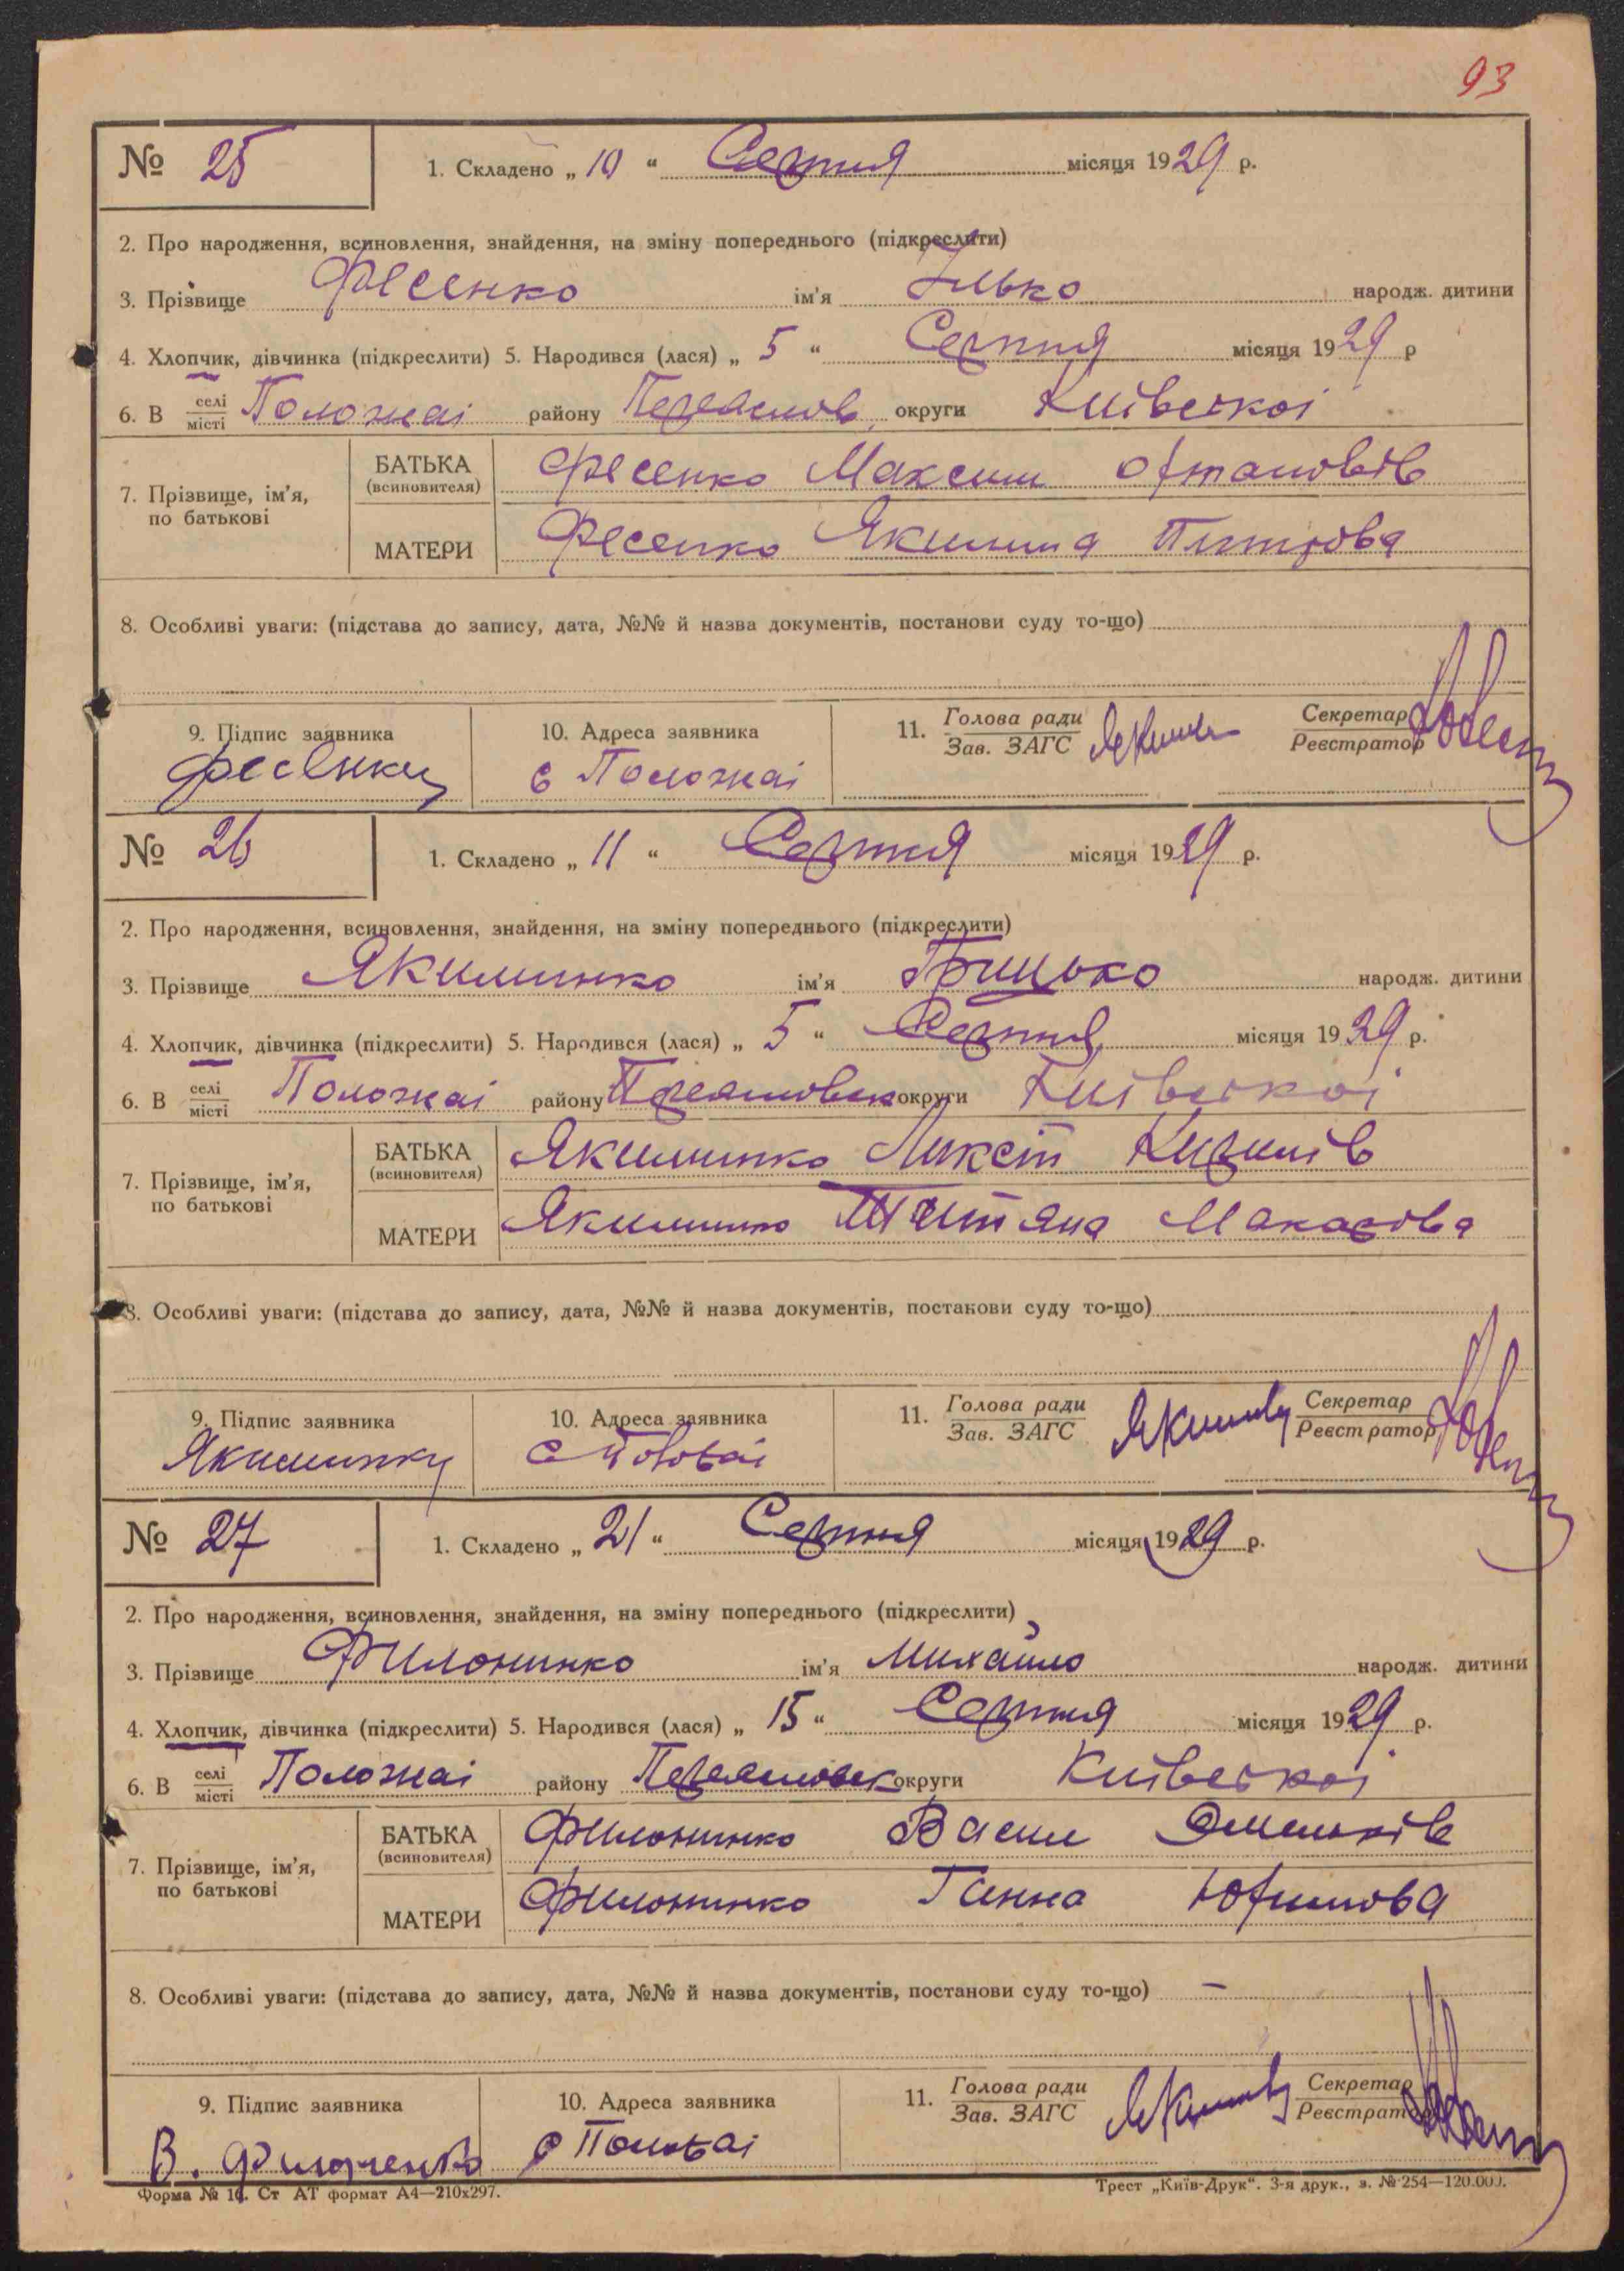 93
№ 25 1. Складено „ 10 “ Серпня місяця 1929 р.
2. Про народження, всиновлення, знайдення, на зміну попереднього (підкреслити)
3. Прізвище Фесенко ім'я Ілько народж. дитини
4. Хлопчик, дівчинка (підкреслити) 5. Народився (лася) „ 5 “ Серпня місяця 1929 р
6. В селі місті Положаі району Переяслов. округи Київської
БАТЬКА (всиновителя) Фесенко Максим
7. Прізвище, ім'я, по батькові
МАТЕРИ Фесенко Якилина Питрова
8. Особливі уваги: (підстава до запису, дата, №№ й назва документів, постанови суду то-що)
9. Підпис заявника 10. Адреса заявника 11. Голова ради Зав. ЗАГС Секретар Реєстратор
Фесенку с Положаі
№ 26 1. Складено „ 11 “ Серпня місяця 1929 р.
2. Про народження, всиновлення, знайдення, на зміну попереднього (підкреслити)
3. Прізвище Якиминко ім'я Грицько народж. дитини
4. Хлопчик, дівчинка (підкреслити) 5. Народився (лася) „ 5 “ Серпня місяця 1929 р.
6. В селі місті Положаі району Переясловск округи Київської
БАТЬКА (всиновителя) Якиминко Микит Кирилів
7. Прізвище, ім'я, по батькові
МАТЕРИ Якиминко Титяна Макарова
8. Особливі уваги: (підстава до запису, дата, №№ й назва документів, постанови суду то-що)
9. Підпис заявника 10. Адреса заявника 11. Голова ради Зав. ЗАГС Секретар Реєстратор
Якиминку с
№ 27 1. Складено „ 21 “ Серпня місяця 1929 р.
2. Про народження, всиновлення, знайдення, на зміну попереднього (підкреслити)
3. Прізвище Филонинко ім'я Михайло народж. дитини
4. Хлопчик, дівчинка (підкреслити) 5. Народився (лася) „ 15 “ Серпня місяця 1929 р.
6. В селі місті Положаі району Переясловск округи Київської
БАТЬКА (всиновителя) Филонинко Васил
7. Прізвище, ім'я, по батькові
МАТЕРИ Филонинко Ганна Юхимова
8. Особливі уваги: (підстава до запису, дата, №№ й назва документів, постанови суду то-що) –
9. Підпис заявника 10. Адреса заявника 11. Голова ради Зав. ЗАГС Секретар Реєстратор
В. Филоненко с
Форма № 10. Ст АТ формат А4—210х297. Трест „Київ-Друк“. 3-я друк., з. № 254—120.000.